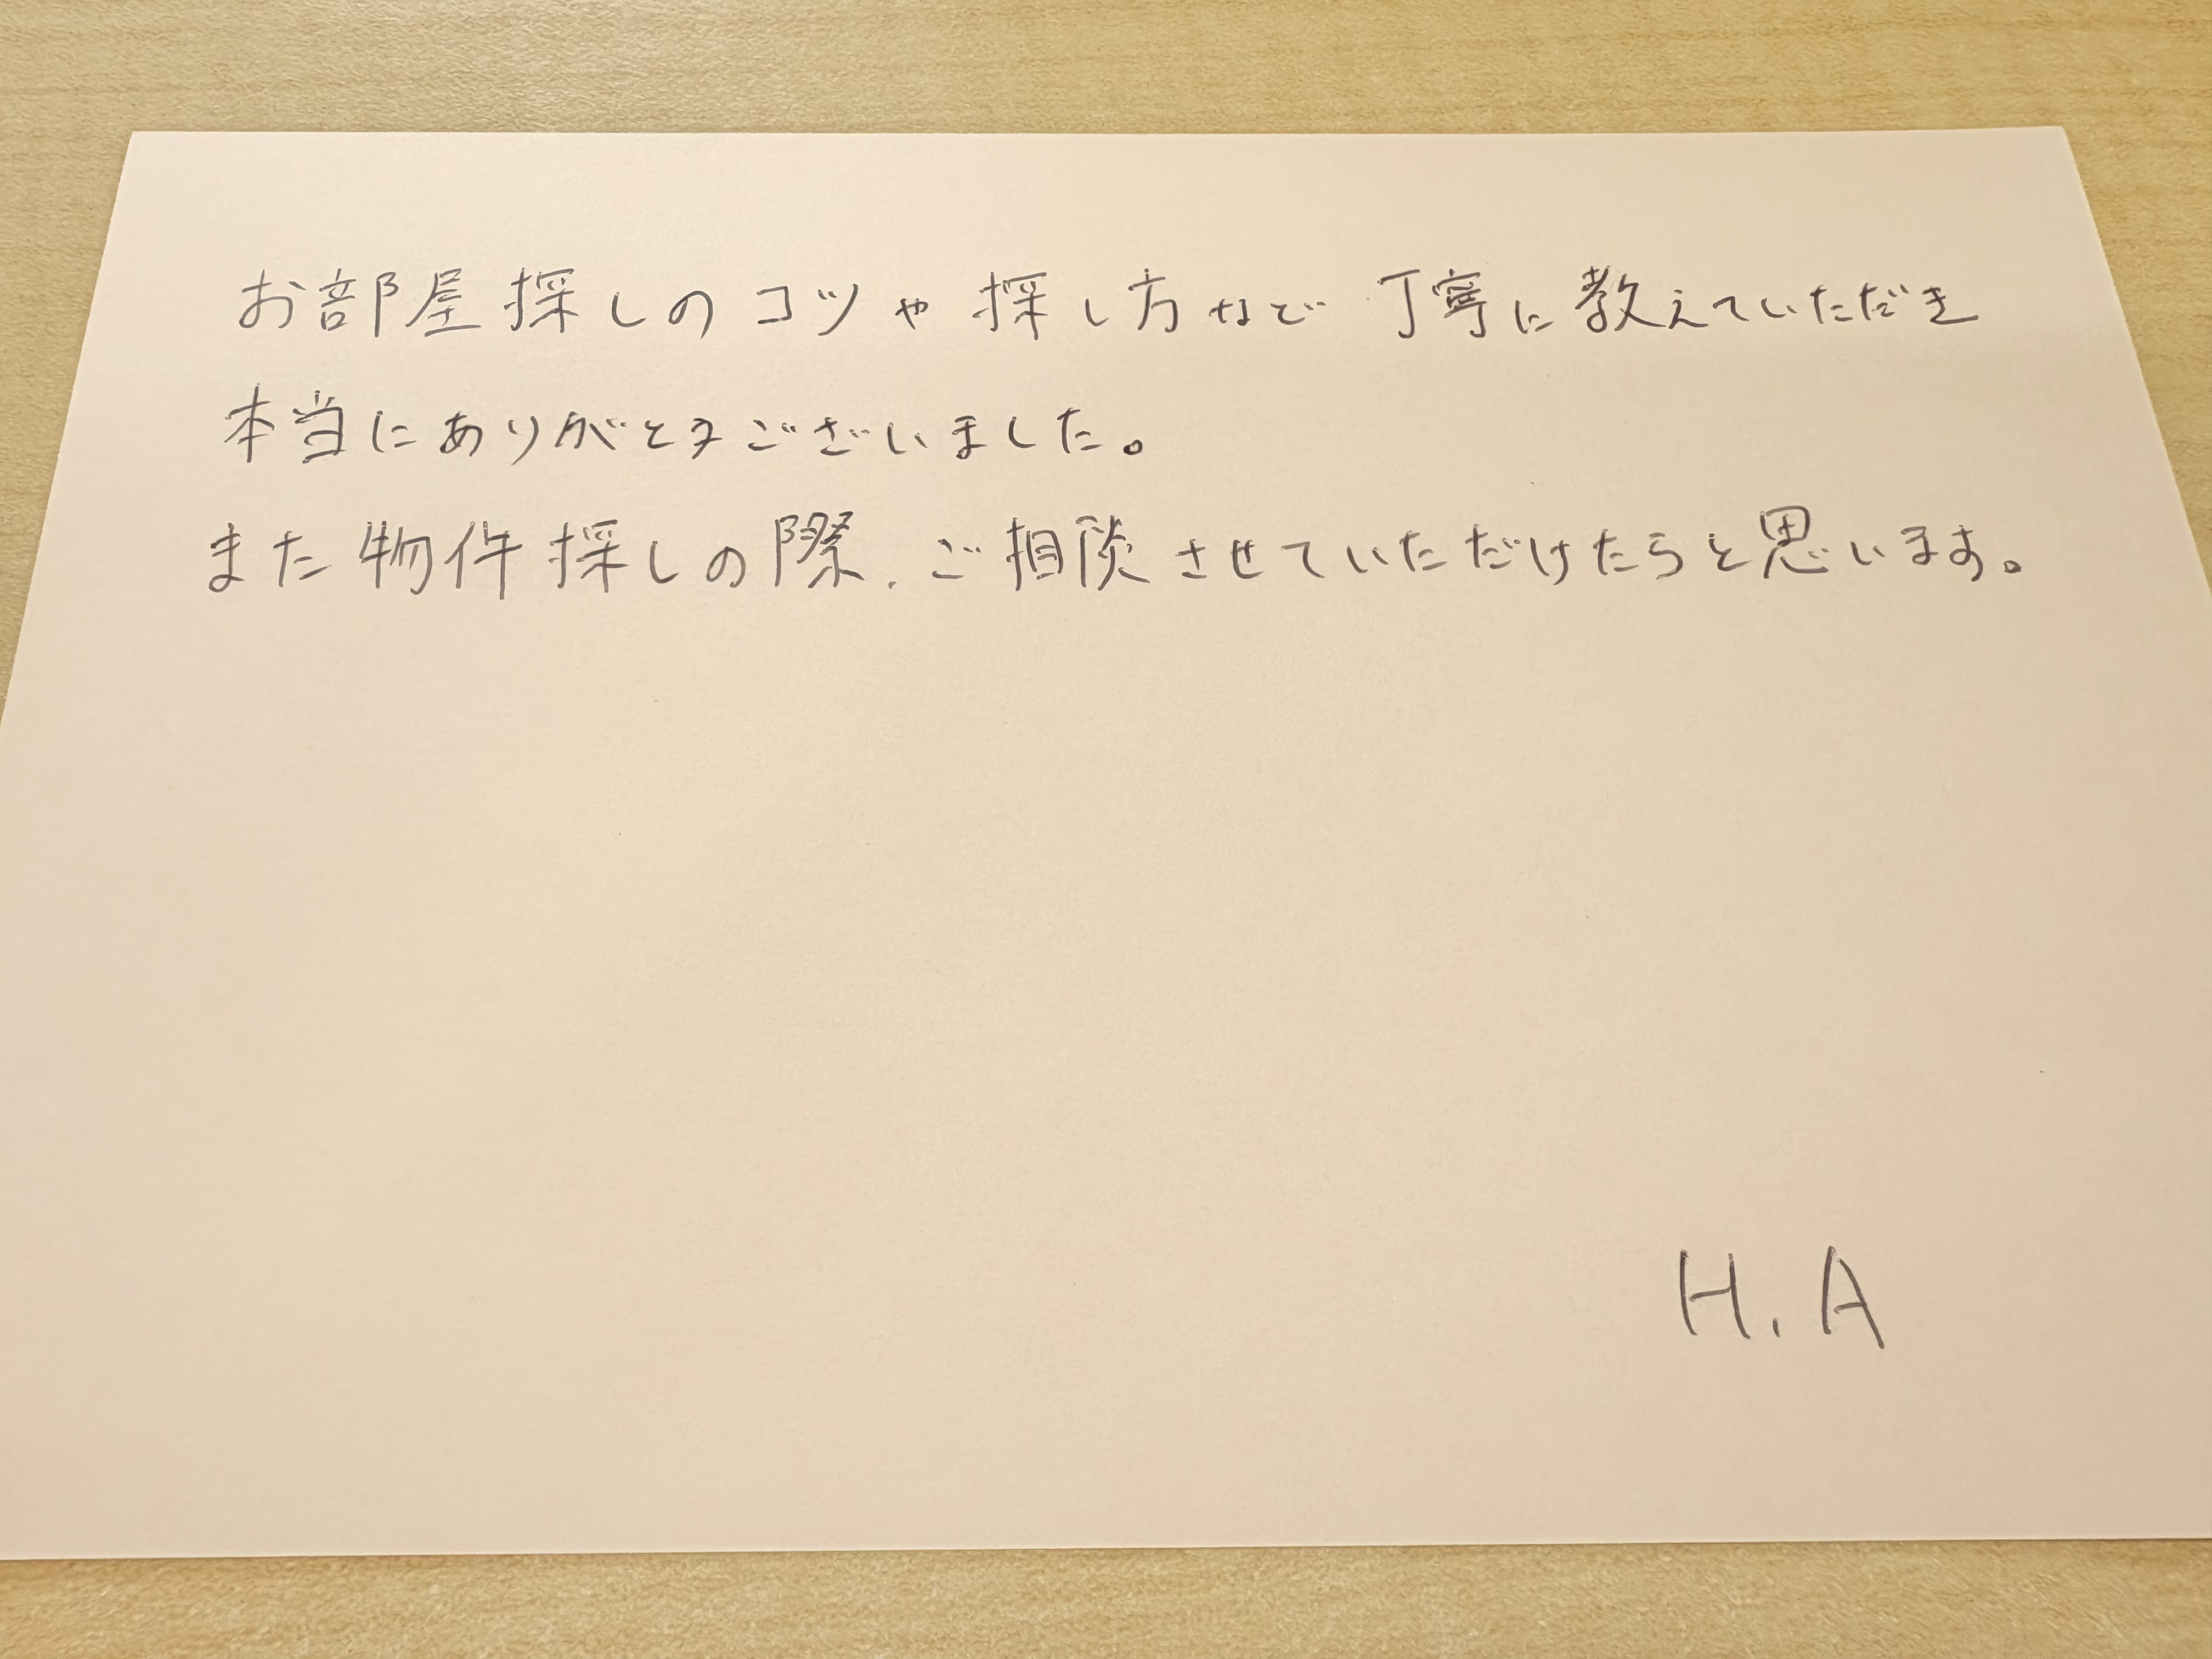 お部屋探しのコツや探し方など丁寧に教えていただき
本当にありがとうございました。
また物件探しの際、ご相談させていただけたらと思います。
H.A